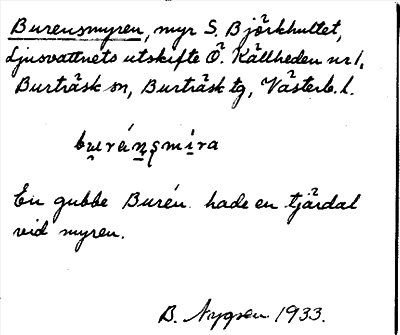 Burensmyren, myr S. Björkhultet,
Ljusvattnets utskifte Ö. Källheden nr 1,
Burträsk sn, Burträsk tg, Västerb. l.
burénsmira
En gubbe Burén hade en tjärdal
vid myren.
B. Nygren 1933.